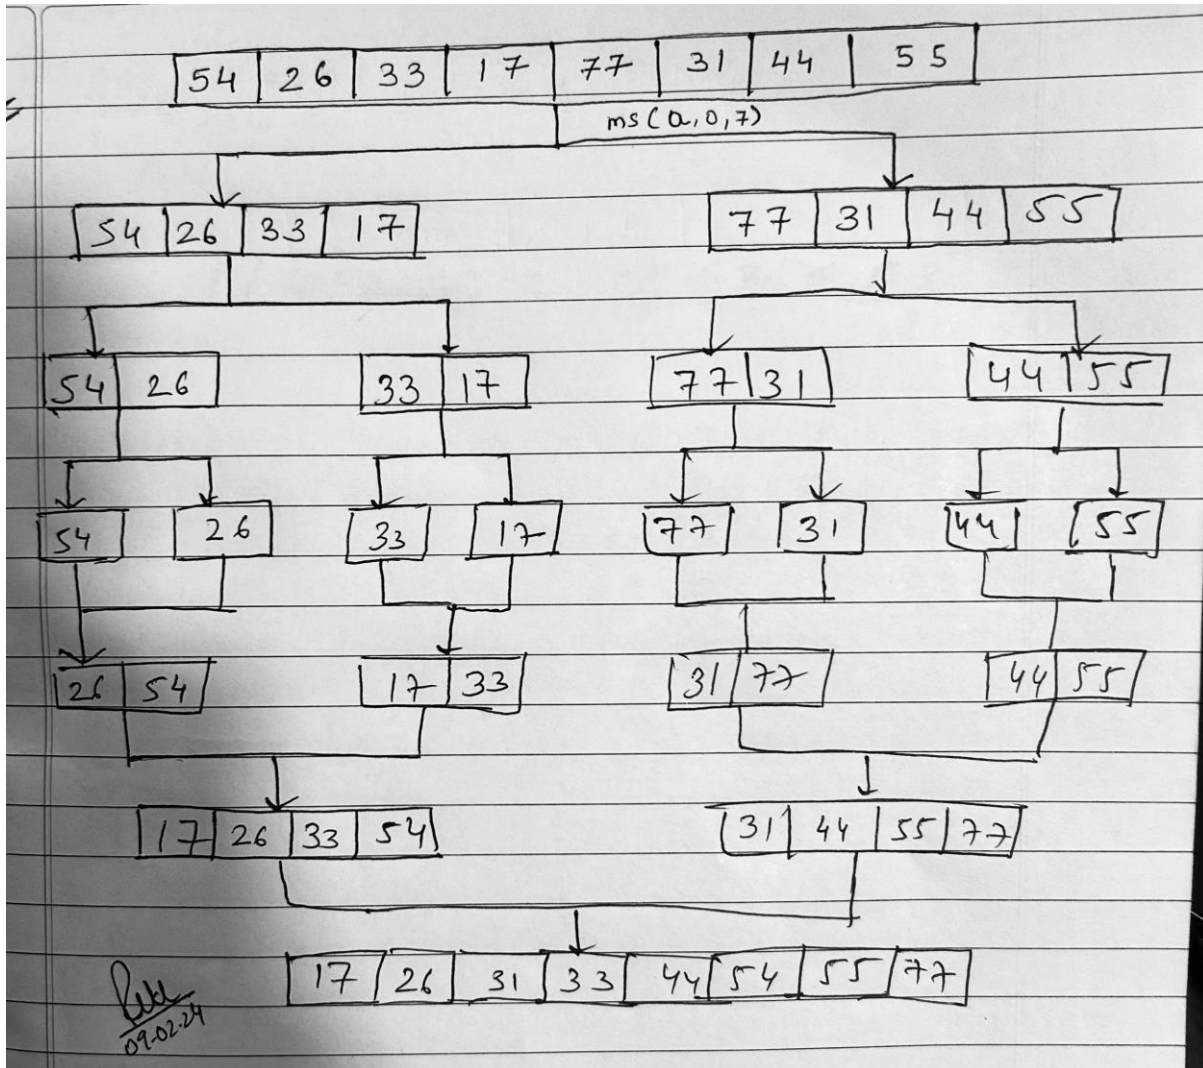 54 26 33 17 77 31 44 55
ms(a,0,7)
54 26 33 17 77 31 44 55
54 26 33 17 77 31 44 55
54 26 33 17 77 31 44 55
26 54 17 33 31 77 44 55
17 26 33 54 31 44 55 77
17 26 31 33 44 54 55 77
09-02-24